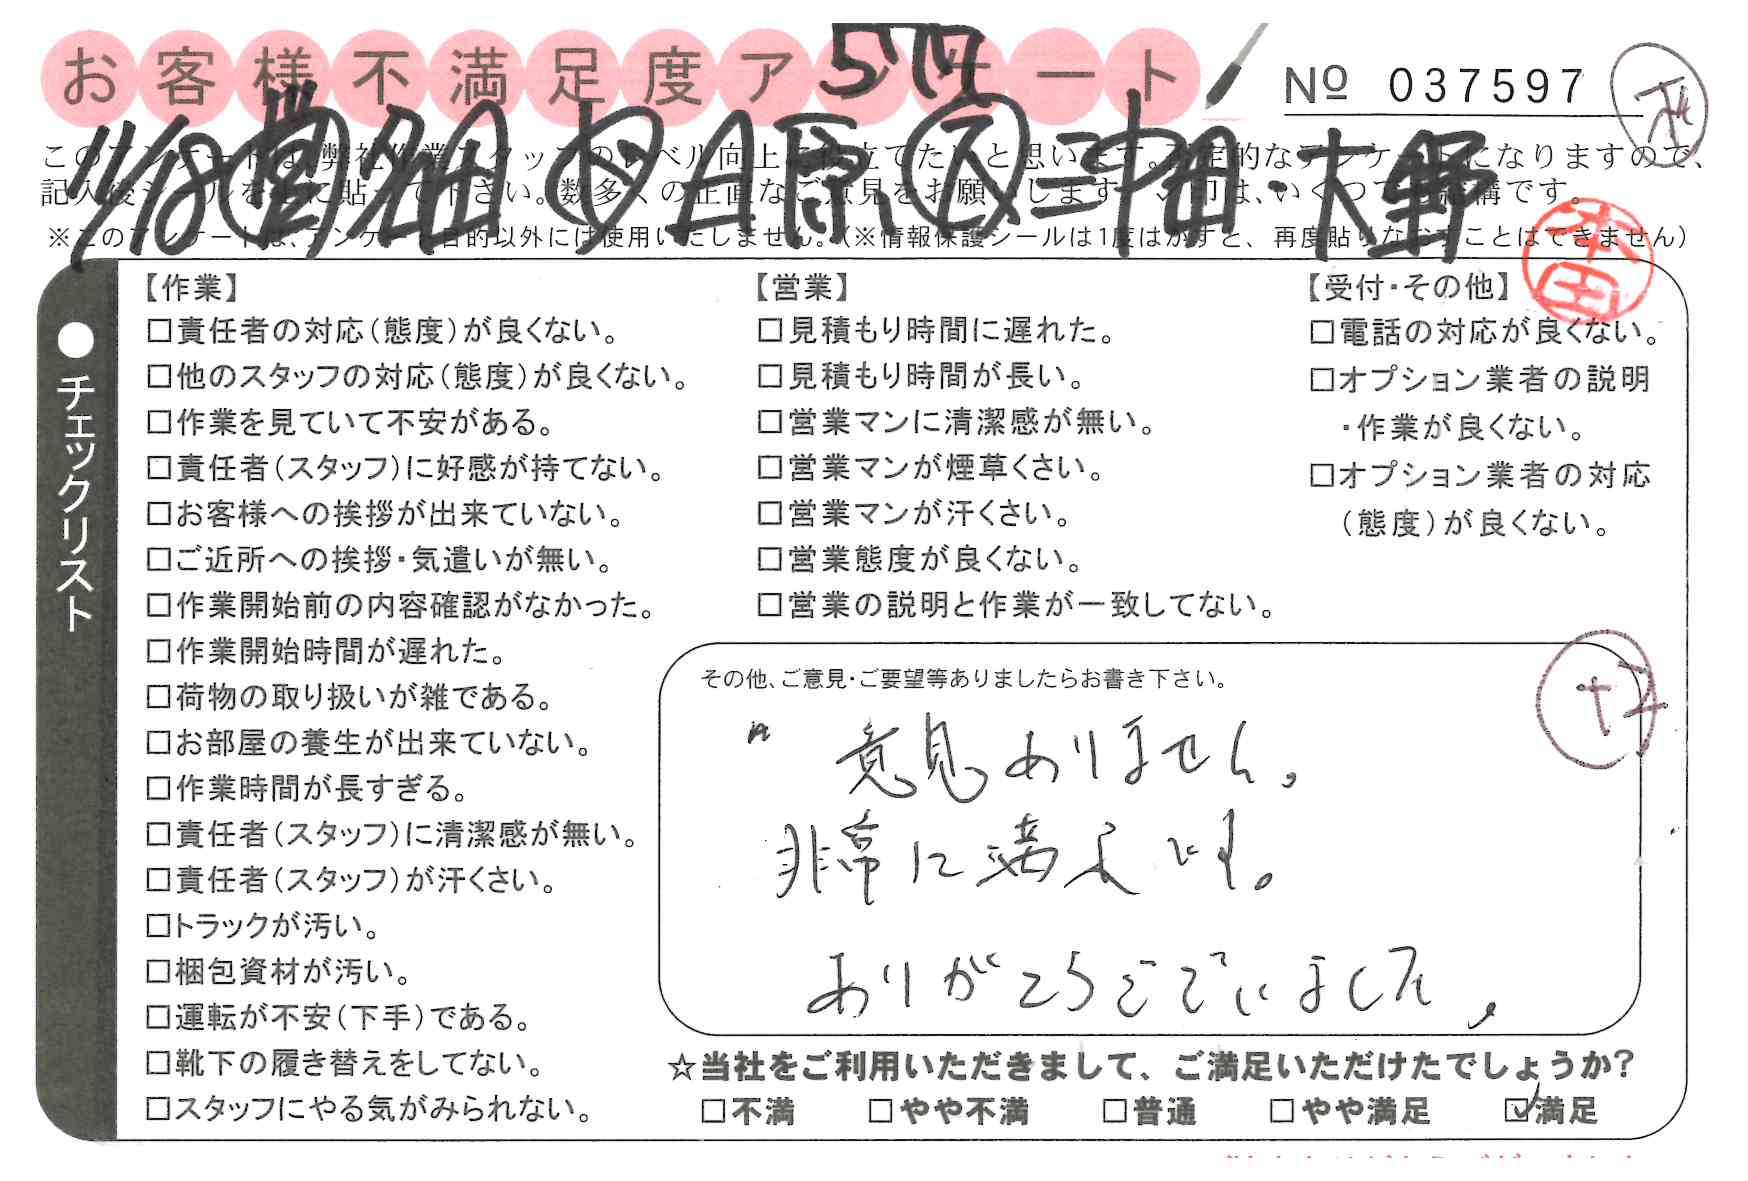 お客様不満足度アンケート
577
№ 037597
11/18 営 名田 サ 日原 図 三沖田・大野
このアンケートは、弊社作業スタッフのレベル向上に役立てたいと思います。否定的なアンケートになりますので、
記入後シールを上に貼って下さい。数多くの正直なご意見をお願いします。レ印は、いくつでも結構です。
※このアンケートは、アンケート目的以外には使用いたしません。(※情報保護シールは1度はがすと、再度貼りなおすことはできません)
本田
●チェックリスト
【作業】
□責任者の対応(態度)が良くない。
□他のスタッフの対応(態度)が良くない。
□作業を見ていて不安がある。
□責任者(スタッフ)に好感が持てない。
□お客様への挨拶が出来ていない。
□ご近所への挨拶・気遣いが無い。
□作業開始前の内容確認がなかった。
□作業開始時間が遅れた。
□荷物の取り扱いが雑である。
□お部屋の養生が出来ていない。
□作業時間が長すぎる。
□責任者(スタッフ)に清潔感が無い。
□責任者(スタッフ)が汗くさい。
□トラックが汚い。
□梱包資材が汚い。
□運転が不安(下手)である。
□靴下の履き替えをしてない。
□スタッフにやる気がみられない。
【営業】
□見積もり時間に遅れた。
□見積もり時間が長い。
□営業マンに清潔感が無い。
□営業マンが煙草くさい。
□営業マンが汗くさい。
□営業態度が良くない。
□営業の説明と作業が一致してない。
【受付・その他】
□電話の対応が良くない。
□オプション業者の説明
・作業が良くない。
□オプション業者の対応
(態度)が良くない。
その他、ご意見・ご要望等ありましたらお書き下さい。
意見ありません。
非常に満足です。
ありがとうございました。
☆当社をご利用いただきまして、ご満足いただけたでしょうか?
□不満 □やや不満 □普通 □やや満足 ☑満足